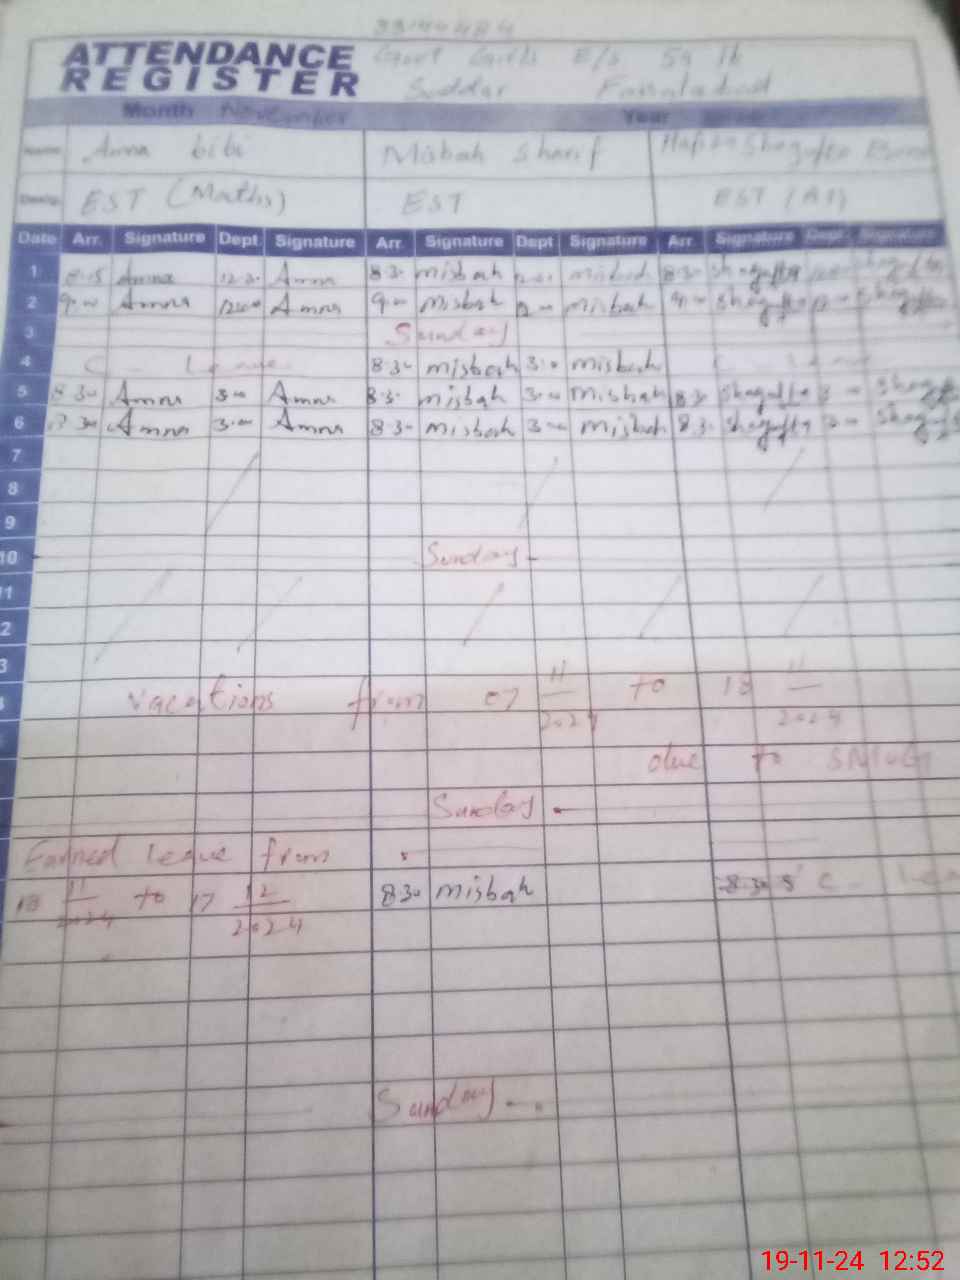 33144484
ATTENDANCE Govt Girls E/S 59 JB
REGISTER Saddar Faisalabad
Month November Year
Name Amna bibi Misbah Sharif Hafiza Shagufta
Desig. EST (Maths) EST EST (A1)
Date Arr. Signature Dept Signature Arr. Signature Dept Signature Arr. Signature Dept. Signature
1 8:15 Amna 12:30 Amna 8:30 misbah misbah 8:30 Shagufta Shagufta
2 9:00 Amna 12:00 Amna 9:00 misbah 12:00 misbah 9:00 Shagufta 12:00 Shagufta
3 Sunday
4 C Leave 8:30 misbah 3:00 misbah C Leave
5 8:30 Amna 3:00 Amna 8:30 misbah 3:00 misbah 8:30 Shagufta 3:00 Shagufta
6 8:30 Amna 3:00 Amna 8:30 misbah 3:00 misbah 8:30 Shagufta 3:00 Shagufta
7
8
9
10 Sunday
11
2
3
vacations from 07 11/2024 to 18 11/2024
due to SMOG
Sunday
Earned Leave from
18 11/2024 to 17 12/2024 8:30 misbah 8:30 C. Lea
Sunday
19-11-24 12:52